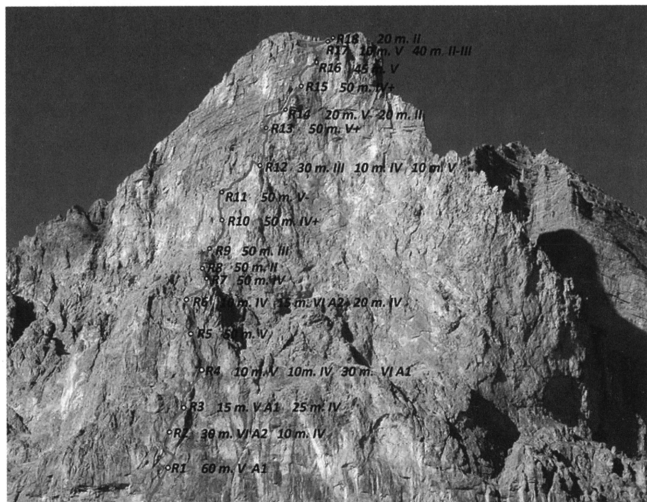 R18 20 m. II
R17 10 m. V 40 m. II-III
R16 45 m. V
R15 50 m. IV+
R14 20 m. V- 20 m. II
R13 50 m. V+
R12 30 m. III 10 m. IV 10 m. V
R11 50 m. V-
R10 50 m. IV+
R9 50 m. III
R8 50 m. II
R7 50 m. IV
R6 m. IV 15 m. VI A2 20 m. IV
R5 50 m. V
R4 10 m. V 10m. IV 30 m. VI A1
R3 15 m. V A1 25 m. IV
R2 30 m. VI A2 10 m. IV
R1 60 m. V A1